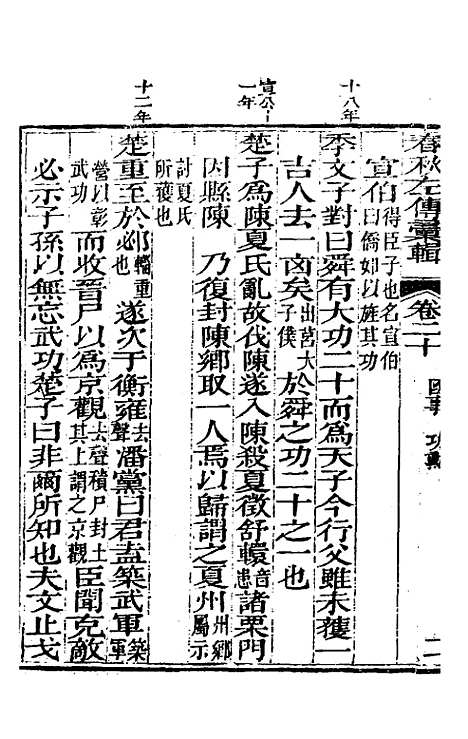 春秋左傳
輯
卷二十
功
二
宣伯得臣子也名宣伯曰僑如以旌其功
十八年
季文子對曰舜有大功二十而為天子今行父雖未獲一
吉人去一凶矣出莒大子僕於舜之功二十之一也
宣公十一年
楚子為陳夏氏亂故伐陳遂入陳殺夏徵舒轘音患諸栗門
因縣陳 乃復封陳鄉取一人焉以歸謂之夏州州鄉屬示
討夏氏所獲也
十二年
楚重至於邲輜重也 遂次于衡雍去聲潘黨曰君盍築武軍築軍
營以彰武功而收晉尸以為京觀去聲積尸封土其上謂之京觀臣聞克敵
必示子孫以無忘武功楚子曰非爾所知也夫文止戈